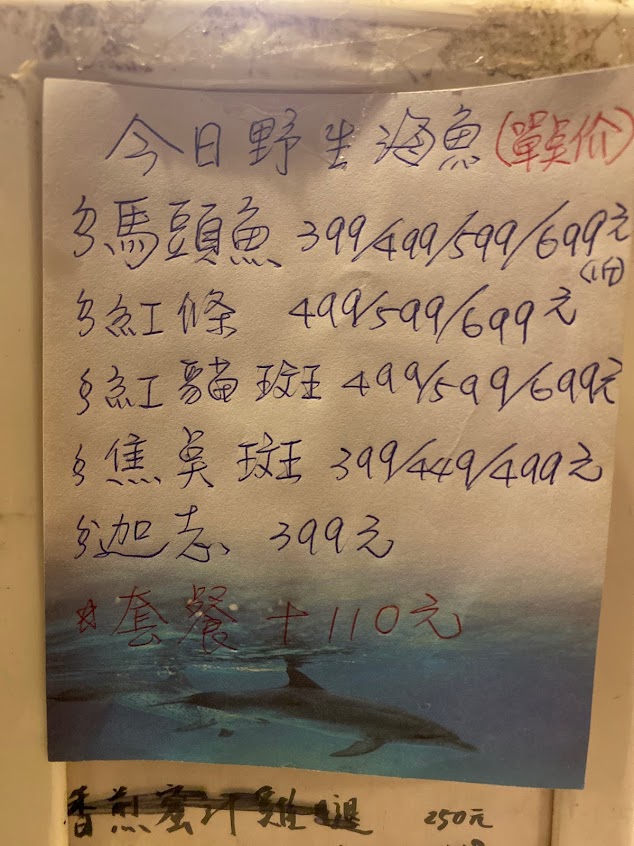 今日野生海魚(單点价)
馬頭魚 399/499/599/699元
(1付)
紅條 499/599/699元
紅貓斑 499/599/699元
焦吳斑 399/449/499元
迦志 399元
套餐 + 110元
香煎蜜汁雞腿 250元